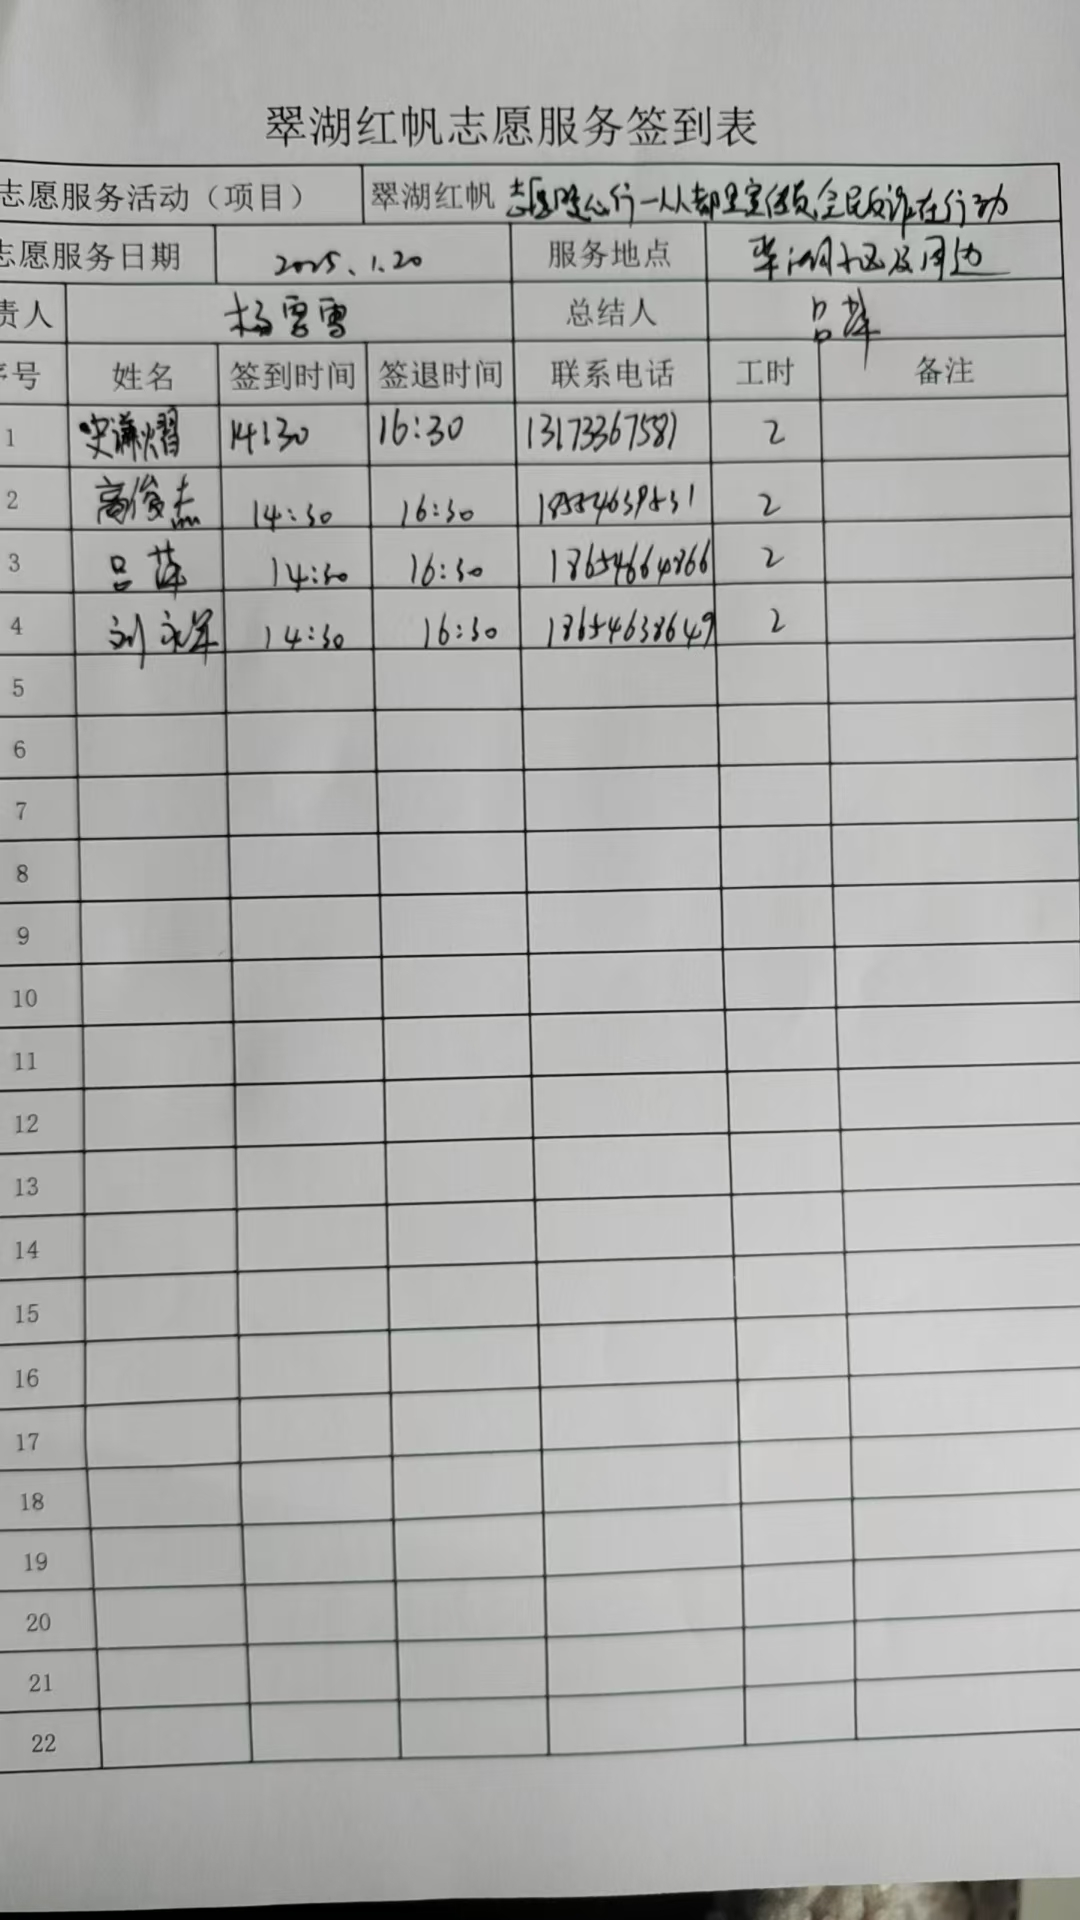 翠湖红帆志愿服务签到表
志愿服务活动（项目） 翠湖红帆 志愿随心行一人人都是宣传员,全民反诈在行动
志愿服务日期 2025.1.20 服务地点 翠湖社区及周边
责人 杨雪 总结人 吕萍
序号 姓名 签到时间 签退时间 联系电话 工时 备注
1 史谦熠 14:30 16:30 13173367581 2
2 高俊杰 14:30 16:30 18554639531 2
3 吕萍 14:30 16:30 18654664866 2
4 刘永军 14:30 16:30 18654638649 2
5
6
7
8
9
10
11
12
13
14
15
16
17
18
19
20
21
22